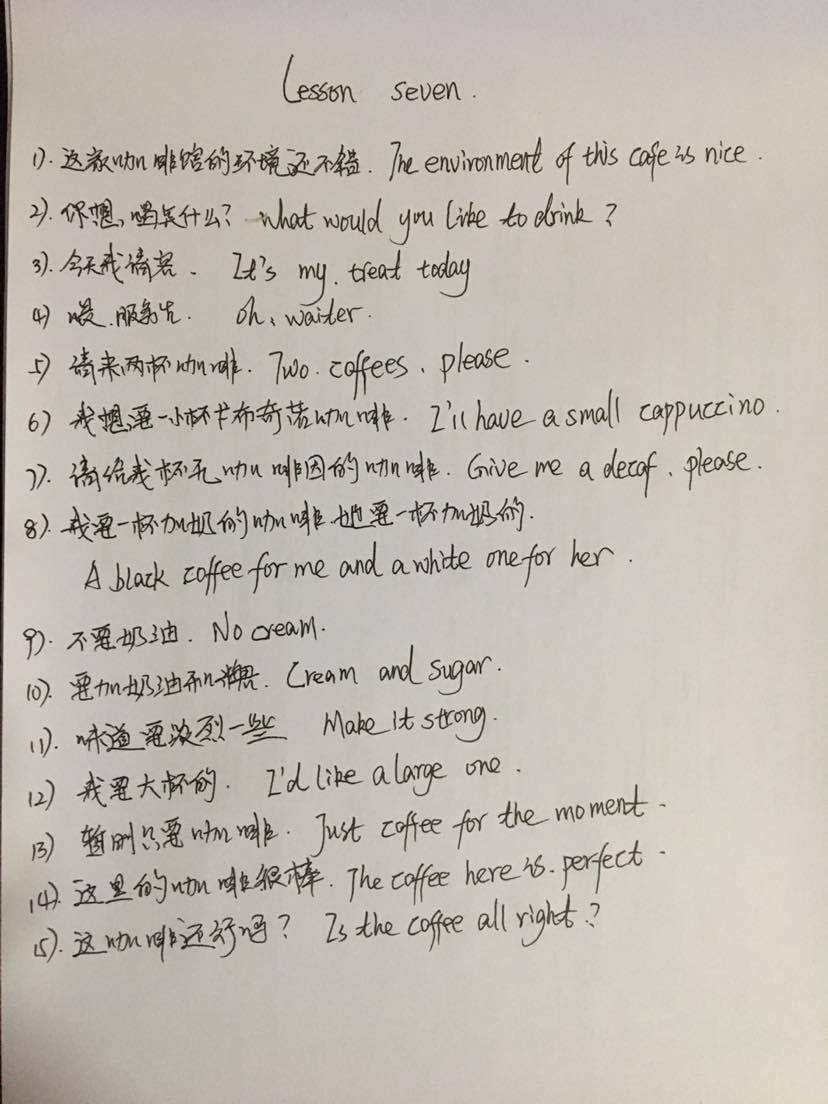 Lesson seven.
1). 这家咖啡馆的环境还不错. The environment of this cafe is nice.
2). 你想喝点什么? what would you like to drink?
3). 今天我请客. It's my treat today
4) 嗨.服务生. oh, waiter.
5) 请来两杯咖啡. Two coffees, please.
6) 我想要一小杯卡布奇诺咖啡. I'll have a small cappuccino.
7). 请给我杯无咖啡因的咖啡. Give me a decaf, please.
8). 我要一杯加奶的咖啡 她要一杯加奶的.
A black coffee for me and a white one for her.
9). 不要奶油. No cream.
10). 要加奶油和糖. Cream and sugar.
11). 味道要浓烈一些 Make it strong.
12) 我要大杯的. I'd like a large one.
13) 暂时只要咖啡. Just coffee for the moment.
14). 这里的咖啡很棒. The coffee here is perfect.
15). 这咖啡还好吗? Is the coffee all right?